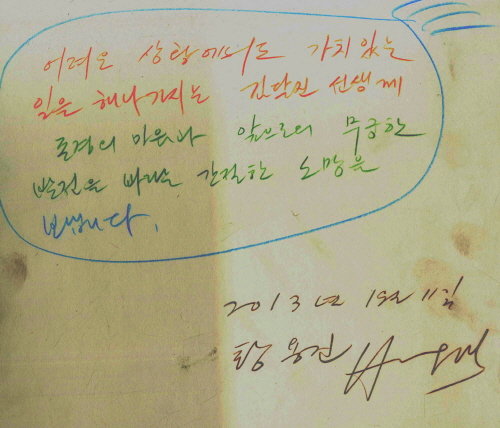 어려운 상황에서도 가치있는
일을 해나가시는 김달진 선생께
존경의 마음과 앞으로의 무궁한
발전을 바라는 간절한 소망을
보냅니다.
2013년 1월 11일
황용진